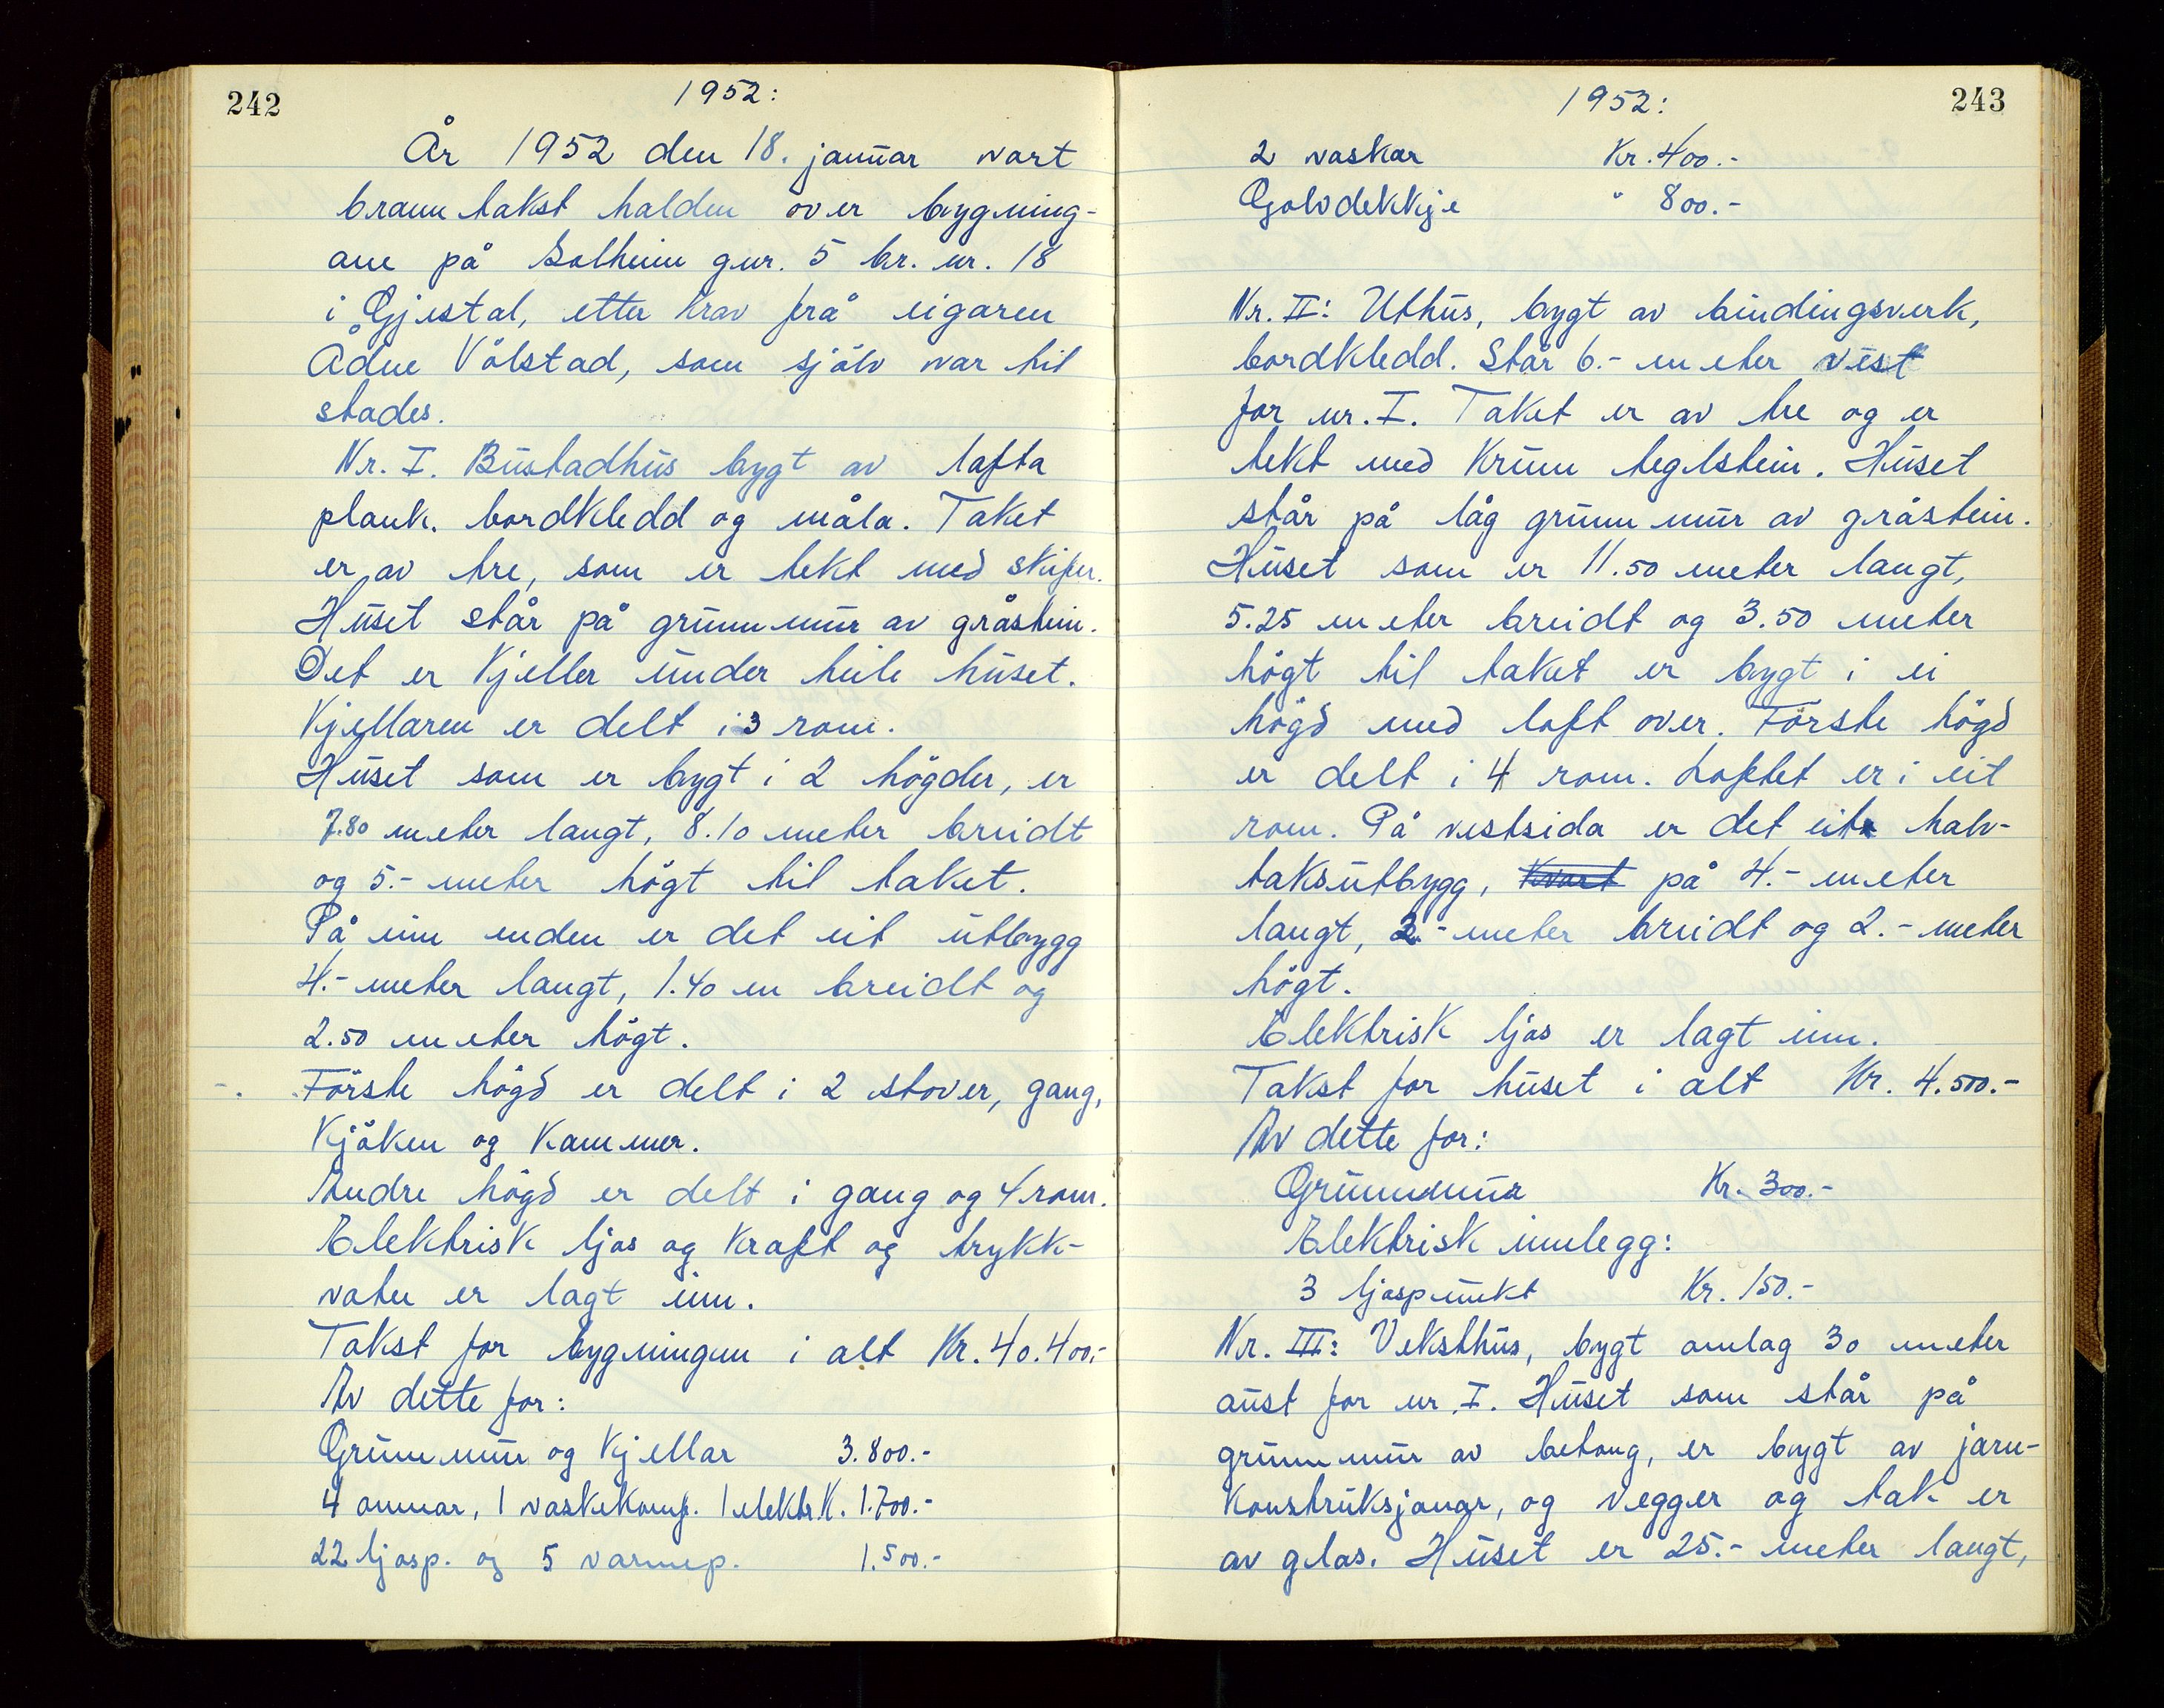 242
1952:
År 1952 den 18. januar vart
branntakst halden over bygning-
ane på Solheim gnr. 5 br. nr. 18
i Gjestal, etter krav frå eigaren
Ådne Vålstad, som sjölv var til
stades.
Nr. I. Bustadhus bygt av lafta
plank. bordkledd og måla. Taket
er av tre, som er tekt med skifer.
Huset står på grunnmur av gråstein.
Det er kjeller under heile huset.
Kjellaren er delt i 3 rom.
Huset som er bygt i 2 högder, er
7.80 meter langt, 8.10 meter breidt
og 5.- meter högt til taket.
På ein enden er det eit utbygg
4.- meter langt, 1.40 m breidt og
2.50 meter högt.
Förste högd er delt i 2 stover, gang,
kjöken og kammer.
Andre högd er delt i gang og 4 rom.
Elektrisk ljos og kraft og trykk-
vatn er lagt inn.
Takst for bygningen i alt Kr. 40.400.-
Av dette for:
Grunnmur og kjellar 3.800.-
4 omnar, 1 vaskekomf. 1 elektr.K. 1.700.-
22 ljosp. og 5 varmep. 1.500.-
243
1952:
2 vaskar Kr. 400.-
Golvdekkje " 800.-
Nr. II: Uthus, bygt av bindingsverk,
bordkledd. Står 6.- meter vest
for nr. I. Taket er av tre og er
tekt med krum teglstein. Huset
står på låg grunnmur av gråstein.
Huset som er 11.50 meter langt,
5.25 meter breidt og 3.50 meter
högt til taket er bygt i ei
högd med loft over. Förste högd
er delt i 4 rom. Loftet er i eit
rom. På vestsida er det eit halv-
taksutbygg, kvart på 4.- meter
langt, 2.- meter breidt og 2.- meter
högt.
Elektrisk ljos er lagt inn.
Takst for huset i alt Kr. 4.500.-
Av dette for:
Grunnmur Kr. 300.-
Elektrisk innlegg:
3 ljospunkt Kr. 150.-
Nr. III: Veksthus, bygt omlag 30 meter
aust for nr. I. Huset som står på
grunnmur av betong, er bygt av jarn-
konstruksjonar, og vegger og tak er
av glas. Huset er 25.- meter langt,